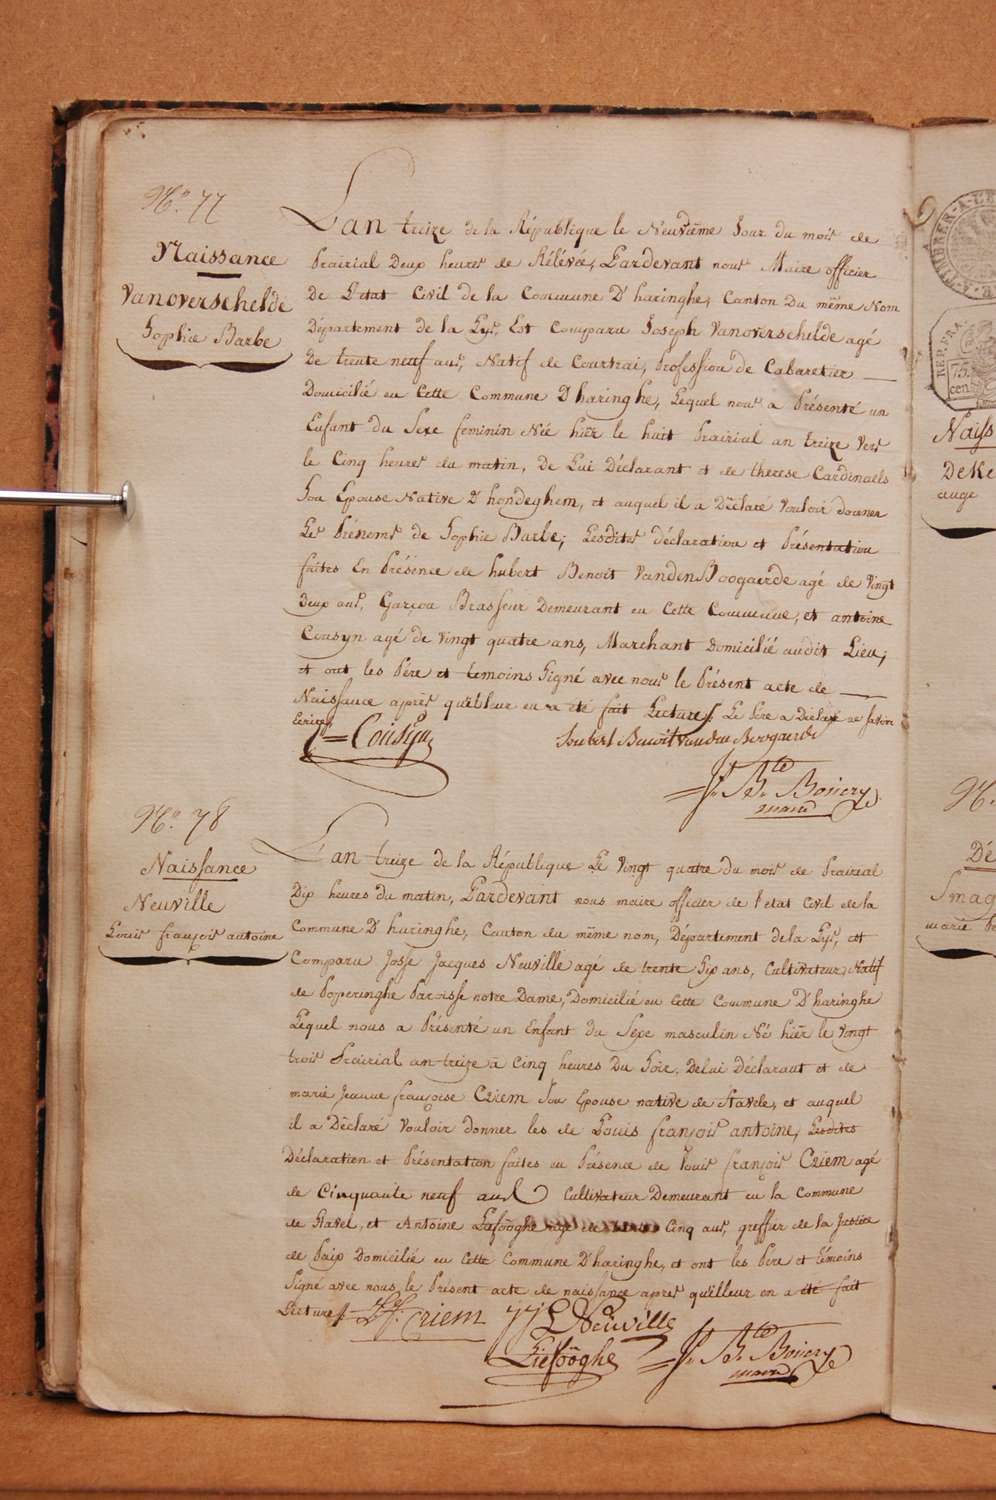 N.º 77
Naissance
Vanoverschelde
Sophie Barbe
L'an treize de la République le Neuvième Jour du mois de
Prairial Deux heures de Rélévée, Pardevant nous Maire officier
De L'état Civil de la Commune D'haringhe, Canton Du même Nom
Département de la Lys, Est Comparu Joseph Vanoverschelde agé
De trente neuf ans, Natif de Courtrai, Profession de Cabaretier
Domicilié en Cette Commune D'haringhe, Lequel nous a Présenté un
Enfant du Sexe feminin Née hier le huit Prairial an treize vers
le Cinq heures du matin, De Lui Déclarant et de therese Cardinaels
Son Epouse Native D'hondeghem, et auquel il a Déclaré Vouloir donner
Les Prénoms de Sophie Barbe, Lesdites déclaration et Présentation
faites En Présence de hubert Benoit VandenBoogaerde agé de Vingt
Deux ans, Garçon Brasseur Demeurant en Cette Commune, et antoine
Cousyn agé de Vingt quatre ans, Marchant Domicilié audit Lieu,
et ont les Père et temoins Signé avec nous le Présent acte de
Naissance après qu'illeur en a été fait Lecture Le Père a Déclaré ne savoir
Ecrire,
Cousyn
Houbert Benoit Vanden Boogaerde
J.n B.te Boniery
maire
N.º 78
Naissance
Neuville
Louis françois antoine
L'an treize de la République Le Vingt quatre du mois de Prairial
Dix heures du matin, Pardevant nous maire officier de l'etat Civil de la
Commune D'haringhe, Canton du même nom, Département dela Lys, est
Comparu Josse Jacques Neuville agé de trente Six ans, Cultivateur Natif
de Poperinghe Paroisse notre Dame, Domicilié en Cette Commune D'haringhe
Lequel nous a Présenté un Enfant du Sexe masculin Né hier le Vingt
trois Prairial an treize à Cinq heures Du Soir, Delui Déclarant et de
marie Jeanne françoise Criem Son Epouse native de Stavele, et auquel
il a Déclaré Vouloir donner les de Louis françois antoine, Lesdites
Déclaration et Présentation faites en Présence de Louis françois Criem agé
de Cinquante neuf ans Cultivateur Demeurant en la Commune
de Stavel, et Antoine Liefooghe agé de Cinq ans, greffier de la Justice
de Paix Domicilié en Cette Commune D'haringhe, et ont les Père et témoins
Signé avec nous, le Présent acte de naissance après qu'illeur en a été fait
Lecture L.f. Criem J J Neuville
Liefooghe
J.n B.te Boniery
maire
TIMBRER-A-L'E
REP.FRA.
75.
cen
Naiss
DeKe
auge
N.
Dé
Smag
marie